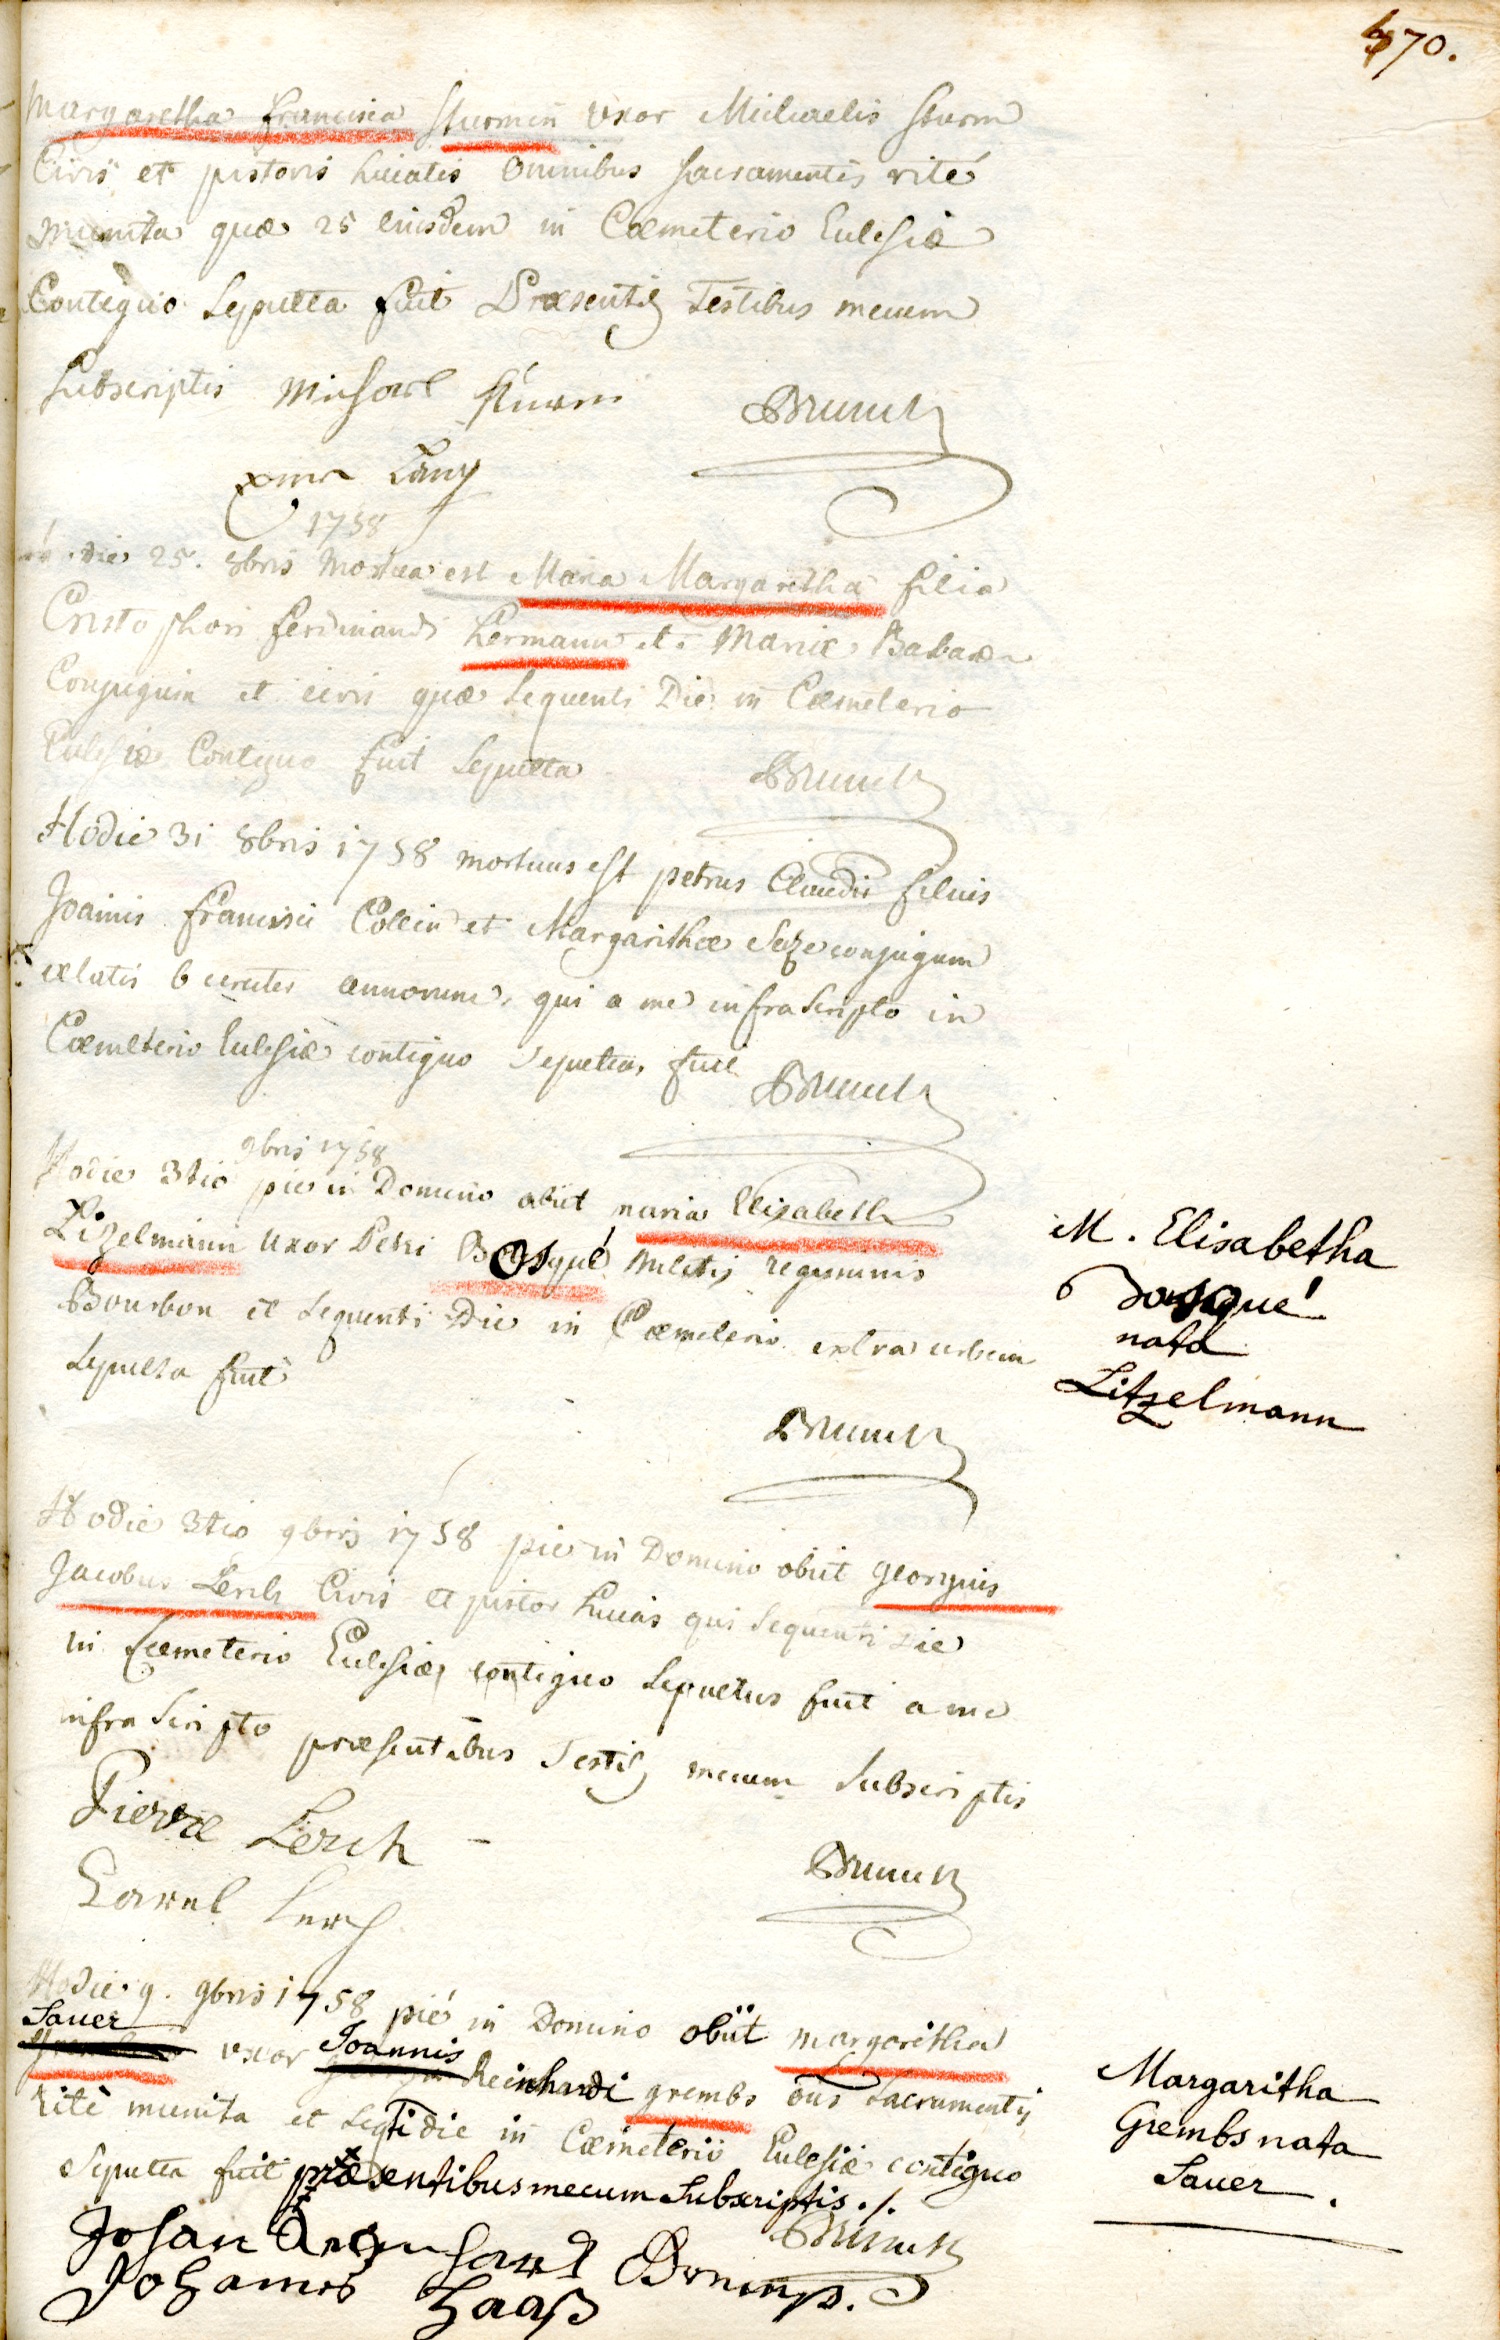 570.
Margaretha Francisca Sturmin uxor Michaelis Sturm
Civis et pistoris huiatis omnibus sacramentis rité
munita quæ 25 eiusdem in Cæmeterio Eclesiæ
Contiguo Sepulta fuit Præsentib Testibus mecum
Subscriptis Michael Sturm Brunck
Lang
1758
die 25. 8bris Mortua est Maria Margaretha filia
Cristophori ferdinandi hermann et Mariæ Babaræ
Conjugum et civis quæ sequenti Die in Cæmeterio
Eclesiæ Contiguo fuit Sepulta Brunck
Hodie 31 8bris 1758 mortuus est petrus Claudii filius
Joannis francisci Collin et Margarithæ conjugum
ætatis 6 circiter annorum, qui a me infrascripto in
Cæmeterio Eclesiæ contiguo Sepultus fuit Brunck
9bris 1758
Hodie 3tio pie in Domino obiit maria Elisabeth
Lizelmann uxor Petri Bosqué militis regiminis
Bourbon et sequenti Die in Cæmeterio extra urbem
Sepulta fuit
Brunck
M. Elisabetha
Bosqué
nata
Litzelmann
Hodie 3tio 9bris 1758 pie in Domino obiit georgius
Jacobus Lerch Civis et pistor huias qui sequenti die
in Cæmeterio Eclesiæ contiguo Sepultus fuit a me
infra Scripto præsentibus Testib mecum Subscriptis
Pierre Lerch
Brunck
Lerch
Hodie 9. 9bris 1758 pié in Domino obiit margaritha
Sauer uxor Joannis Reinhardi grembs oius Sacramentis
rité munita et seqti die in Cæmeterio Eclesiæ contiguo
Sepulta fuit præsentibus mecum Subscriptis ./.
Brunck
Johan
Johannes Haaß
Margaritha
Grembs nata
Sauer.